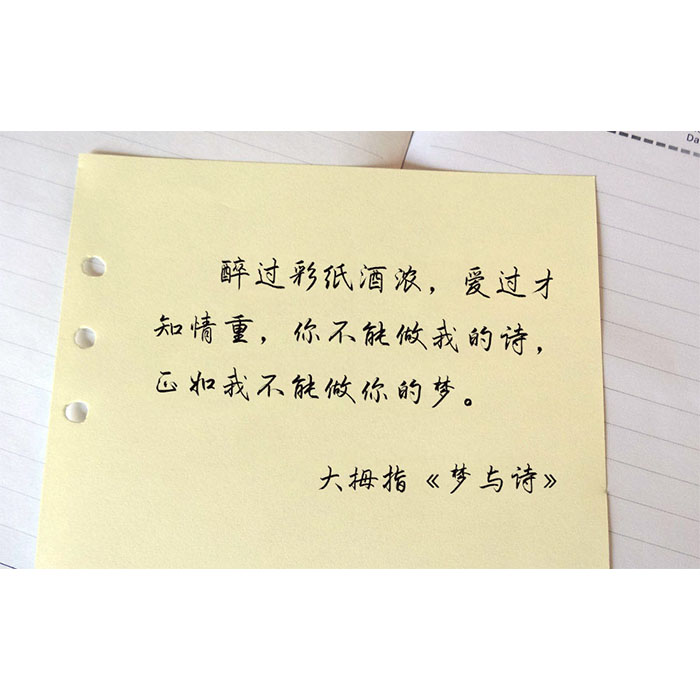 Da
醉过彩纸酒浓，爱过才
知情重，你不能做我的诗，
正如我不能做你的梦。
大拇指《梦与诗》